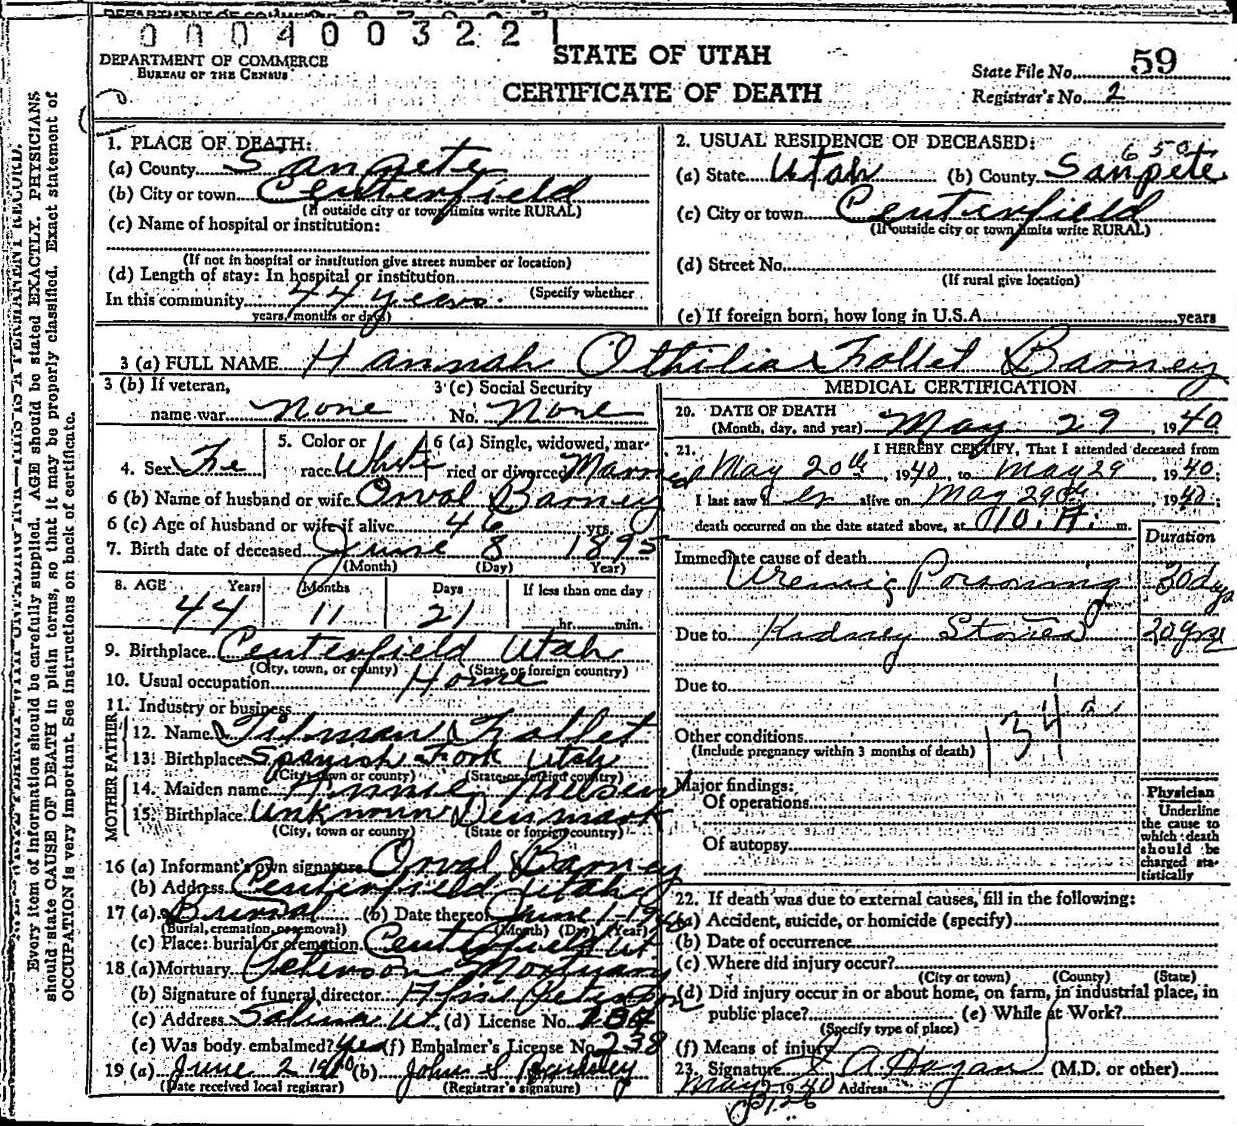 DEPARTMENT OF COMMERCE
0004003221
DEPARTMENT OF COMMERCE
BUREAU OF THE CENSUS
STATE OF UTAH
CERTIFICATE OF DEATH
State File No. 59
Registrar's No. 2
Every item of information should be carefully supplied. AGE should be stated EXACTLY. PHYSICIANS
should state CAUSE OF DEATH in plain terms, so that it may be properly classified. Exact statement of
OCCUPATION is very important. See instructions on back of certificate.
1. PLACE OF DEATH:
(a) County Sanpete
(b) City or town Centerfield
(If outside city or town limits write RURAL)
(c) Name of hospital or institution:
(If not in hospital or institution give street number or location)
(d) Length of stay: In hospital or institution
(Specify whether
In this community 44 years.
years, months or days)
2. USUAL RESIDENCE OF DECEASED:
(a) State Utah (b) County Sanpete
(c) City or town Centerfield
(If outside city or town limits write RURAL)
(d) Street No.
(If rural give location)
(e) If foreign born, how long in U.S.A. years
3 (a) FULL NAME Hannah Othilia Follet Barney
3 (b) If veteran,
name war None
3 (c) Social Security
No. None
4. Sex Fe
5. Color or
race White
6 (a) Single, widowed, mar-
ried or divorced Married
6 (b) Name of husband or wife Orval Barney
6 (c) Age of husband or wife if alive 46 yrs.
7. Birth date of deceased June 8 1895
(Month) (Day) Year)
8. AGE Years Months Days If less than one day
44 11 21 hr. min.
9. Birthplace Centerfield Utah
(City, town, or county) (State or foreign country)
10. Usual occupation Home
11. Industry or business
FATHER
12. Name Tilman Follet
13. Birthplace Spanish Fork Utah
(City, town or county) (State or foreign country)
MOTHER
14. Maiden name Annie Nielsen
15. Birthplace Unknown Denmark
(City, town or county) (State or foreign country)
16 (a) Informant's own signature Orval Barney
(b) Address Centerfield Utah
17 (a) Burial (b) Date thereof June 1-1940
(Burial, cremation, or removal) (Month) (Day) (Year)
(c) Place: burial or cremation Centerfield Ut
18 (a) Mortuary Peterson Mortuary
(b) Signature of funeral director Peterson
(c) Address Salina U. (d) License No.
(e) Was body embalmed? yes (f) Embalmer's License No. 238
19 (a) June 2 1940 (b) John S
(Date received local registrar) (Registrar's signature)
MEDICAL CERTIFICATION
20. DATE OF DEATH
(Month, day, and year) May 29 1940
21. I HEREBY CERTIFY, That I attended deceased from
May 20th, 1940 to May 29 1940;
I last saw h er alive on May 29th 1940;
death occurred on the date stated above, at 10. A. m.
Duration
Immediate cause of death
Uremic Poisoning 30 dys
Due to Kidney Stones 20 yrs
Due to
134a
Other conditions
(Include pregnancy within 3 months of death)
Major findings:
Of operations
Of autopsy
Physician
Underline
the cause to
which death
should be
charged sta-
tistically
22. If death was due to external causes, fill in the following:
(a) Accident, suicide, or homicide (specify)
(b) Date of occurrence
(c) Where did injury occur?
(City or town) (County) (State)
(d) Did injury occur in or about home, on farm, in industrial place, in
public place? (e) While at Work?
(Specify type of place)
(f) Means of injury
23. Signature A Hagan (M.D. or other)
May 1940 Address